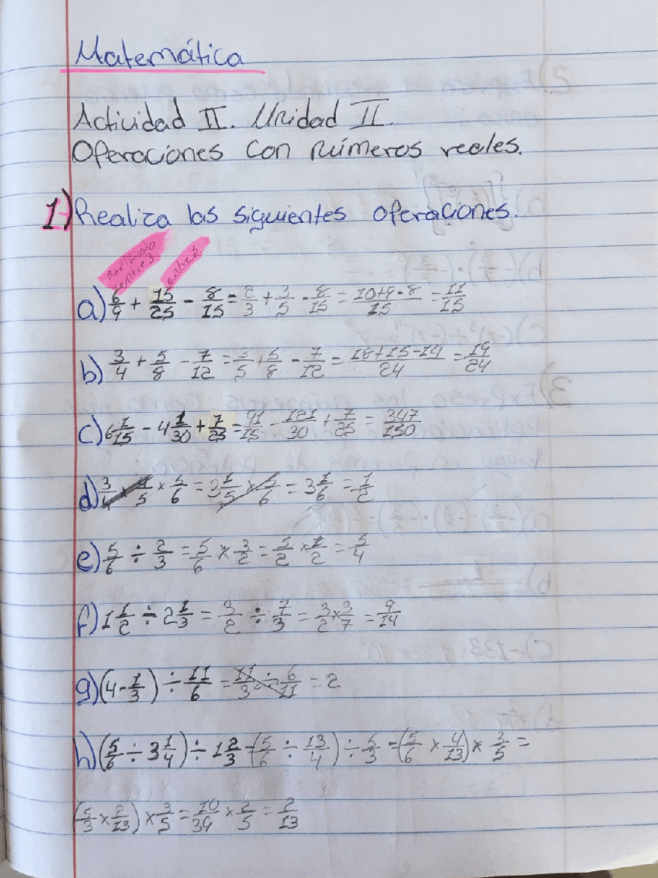 Matemática
Actividad II. Unidad II.
Operaciones con números reales.
1) Realiza los siguientes operaciones.
entre 3 entre 5
a) 6/9 + 15/25 - 8/15 = 2/3 + 3/5 - 8/15 = 10+9-8/15 = 11/15
b) 3/4 + 5/8 - 7/12 = 3/5 + 5/8 - 7/12 = 18+15-14/24 = 19/24
c) 6 1/15 - 4 1/30 + 7/25 = 91/15 - 121/30 + 7/25 = 347/150
d) 3/4 × 4/5 × 5/6 = 3 1/5 × 5/6 = 3 1/6 = 1/2
e) 5/6 ÷ 2/3 = 5/6 × 3/2 = 5/2 × 1/2 = 5/4
f) 1 1/2 ÷ 2 1/3 = 3/2 ÷ 7/3 = 3/2 × 3/7 = 9/14
g) (4 - 1/3) ÷ 11/6 = 11/3 ÷ 6/11 = 2
h) (5/6 ÷ 3 1/4) ÷ 1 2/3 = (5/6 ÷ 13/4) ÷ 5/3 = (5/6 × 4/13) × 3/5 =
(5/3 × 2/13) × 3/5 = 10/39 × 3/5 = 2/13